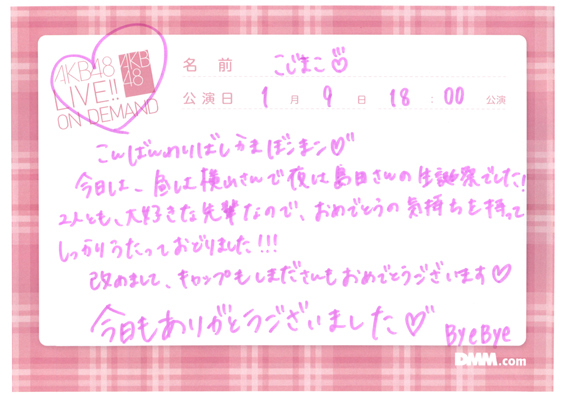 AKB48
LIVE!!
ON DEMAND
AKB
48
名 前 こじまこ♡
公演日 1 月 9 日 18 : 00 公演
こんばんわりばしかまぼこまこ♡
今日は、昼は横山さんで夜は島田さんの生誕祭でした!
2人とも、大好きな先輩なので、おめでとうの気持ちを持って
しっかりうたっておどりました!!!
改めまして、キャップもしまださんもおめでとうございます♡
今日もありがとうございました♡
ByeBye
DMM.com